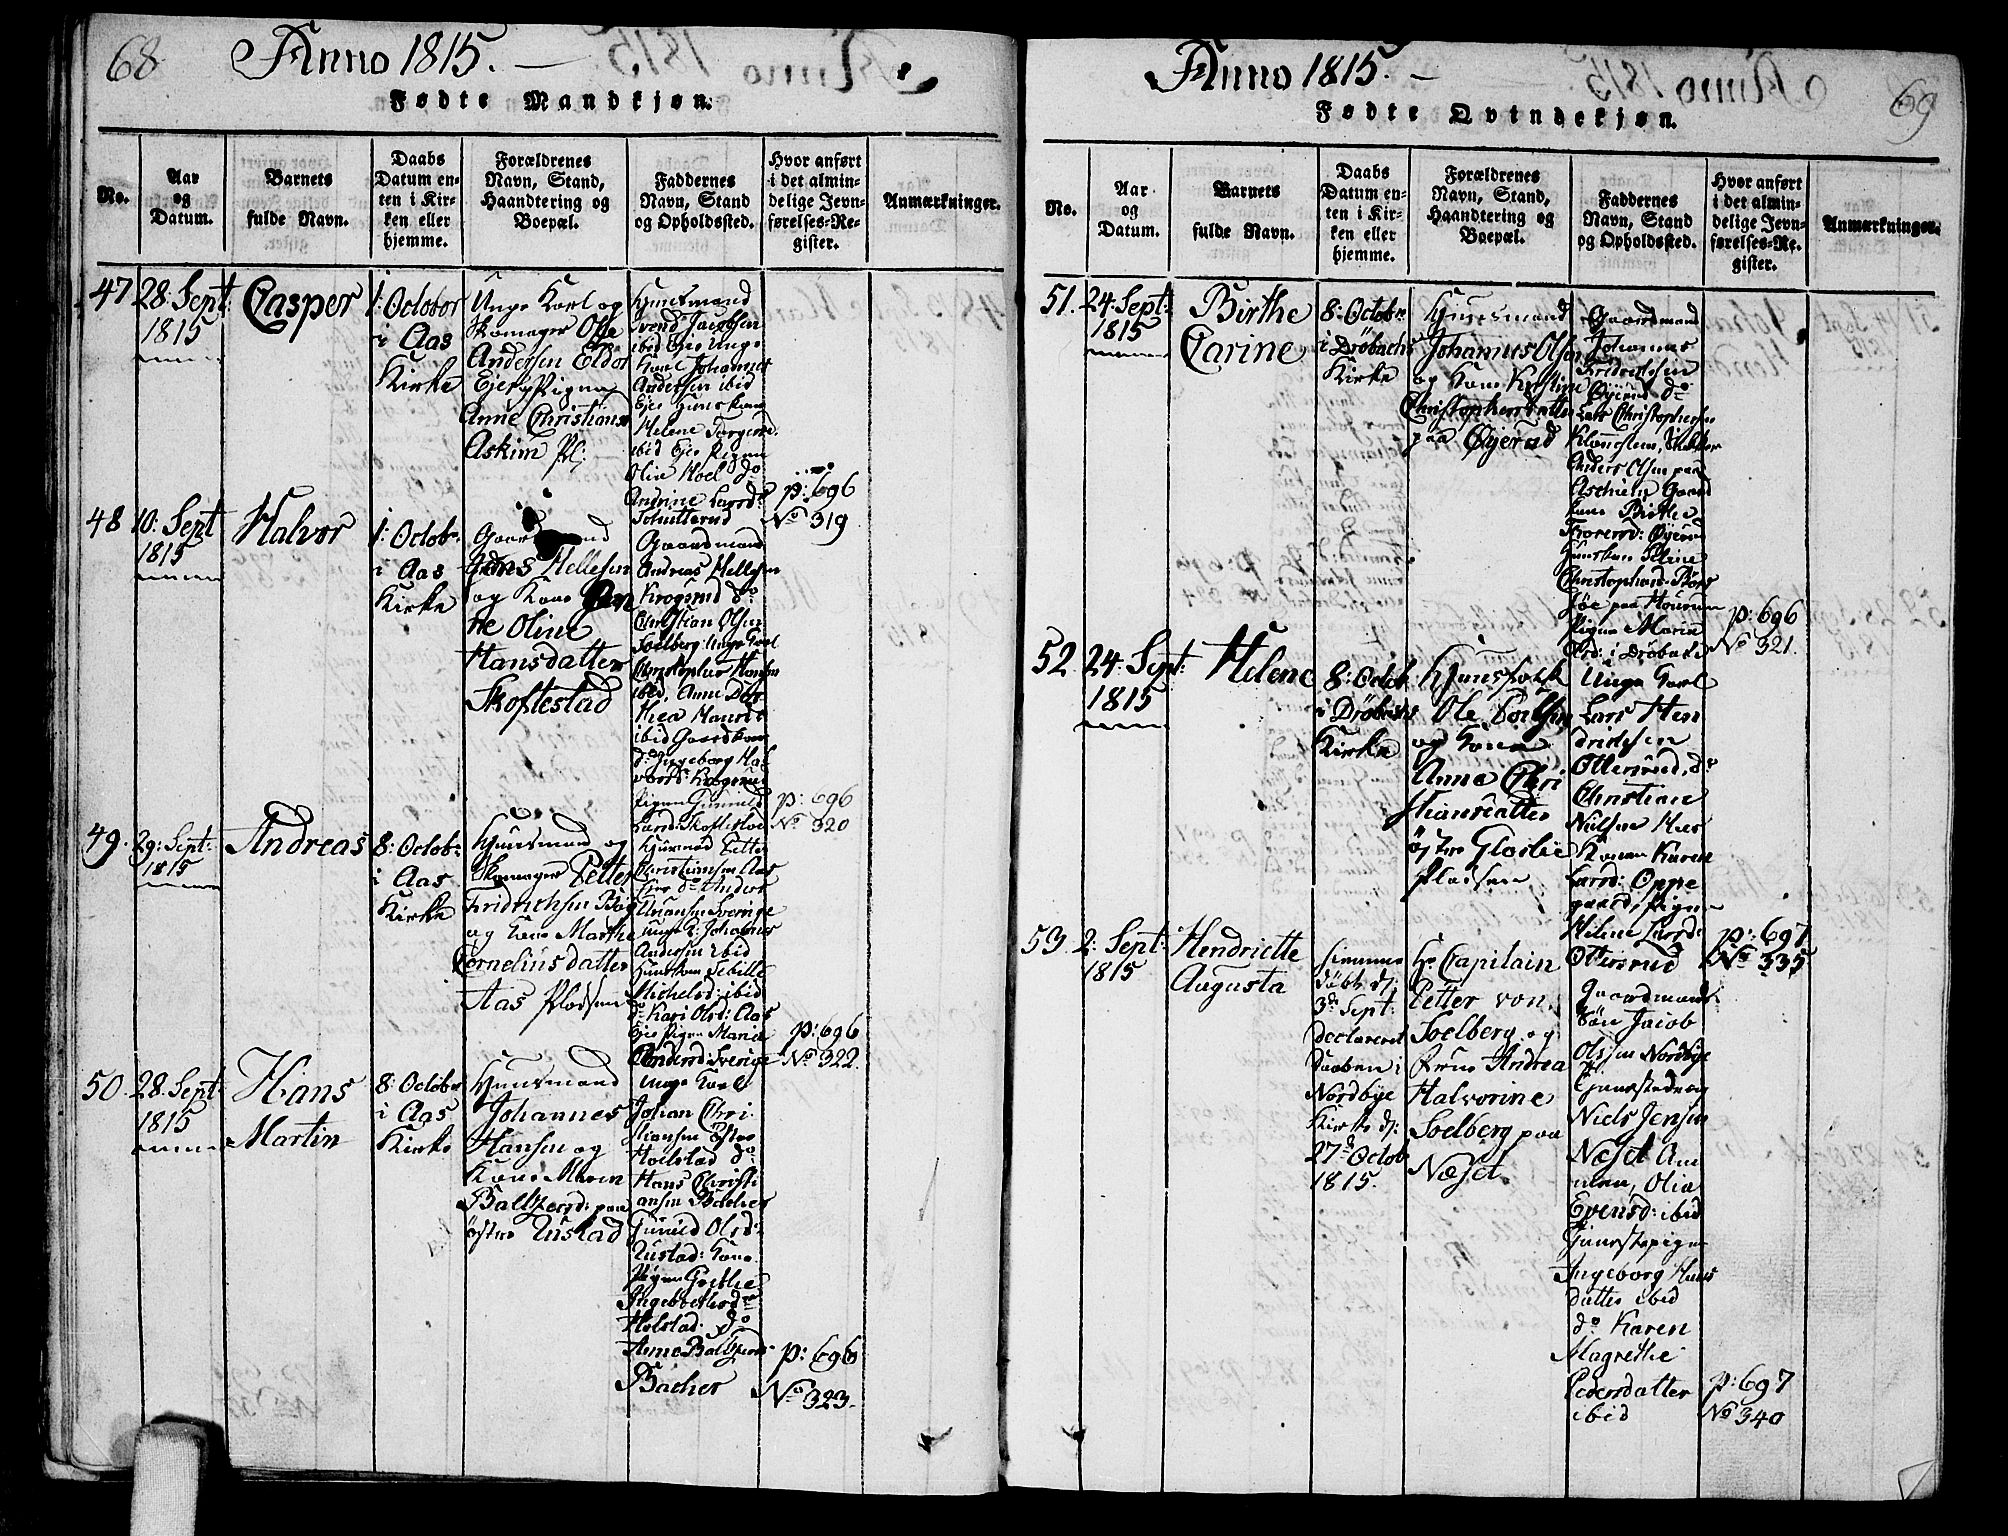 68
Anno 1815.
Fødte Mandkjøn.
No.
Aar
og
Datum.
Barnets
fulde Navn.
Daabs
Datum en-
ten i Kir-
ken eller
hjemme.
Forældrenes
Navn, Stand,
Haandtering og
Boepæl.
Faddernes
Navn, Stand
og Opholdssted.
Hvor anført
i det almin-
delige Jevn-
førelses-Re-
gister.
Anmærkninger.
47
28. Sept:
1815
Casper
1: October
i Aas
Kirke
Unge Karl og
Skomager Ole
Andersen Eldor
Eje, Pigen
Anne Christians
Askim Pl:
Huusmand
Svend Jacobsen
ibid Eje Unge
Karl Johannes
Andersen ibid
Eje Huuskone
Helene
ibid Eje Pigen
Olia Moel do
Andrine Larsd:
p: 696
No 319
48
10: Sept
1815
Halvor
1: Octobr:
i Aas
Kirke
Jens Hellesen
og Kone
Oline
Hansdatter
Skoftestad
Gaardmand
Andreas Hellesen
Krogsrud do
Christian Olsen
Solberg Unge Karl
Christopher Hansen
ibid, Anne Dor
thea
ibid Gaardkone
do Ingeborg Hal
vorsd: Krogsrud
Pigen Gunild
Larsd: Skoftestad
p: 696
No 320
49.
29: Sept:
1815
Andreas
8: Octobr:
i Aas
Kirke
Huusmand og
Skomager Petter
Fridrichsen
og Kone Marthe
Cornelius datter
Aas Pladsen
Huusmd Petter
Christiansen Aas
Eje do Anders
Sverige
unge K: Johannes
Andersen ibid
Huuskone Sebille
Michelsd: ibid
do Kari Olsd: Aas
Eje Pigen Marie
Andersd: Sverige
p: 696
No 322.
50.
28. Sept
1815
Hans
Martin
8: October
i Aas
Kirke
Huusmand
Johannes
Hansen og
Kone Maren
Baltzersd: paa
østre Rustad
Unge Karl
Johan Chri
stiansen Østre
Holstad do
Hans Christi
ansen
Gunild Olsd:
Rustad: Kone
Pigen Grethe
Ingebrethsd
Holstad: do
Anne Baltzersd
Bacher
p: 696
No 323.
69
Anno 1815.
Fødte Qvindekjøn.
No.
Aar
og
Datum.
Barnets
fulde Navn.
Daabs
Datum en-
ten i Kir-
ken eller
hjemme.
Forældrenes
Navn, Stand,
Haandtering og
Boepæl.
Faddernes
Navn, Stand
og Opholdssted.
Hvor anført
i det almin-
delige Jevn-
førelses-Re-
gister.
Anmærkninger.
51.
24. Sept:
1815
Birthe
Carine
8: Octobr:
i Drøbachs
Kirke
Huusmand
Johannes Olsen
og Kone Kirstine
Christophersdatter
paa Øjerud
Gaardmand
Johannes
Fredrichsen
Øjerud do
Lars Christophersen
Anders Olsen paa
Gaard
kone Birthe
Øyerud
Huuskone Eline
Christophersd:
paa
Pigen Maria
Olsd: i Drøbach
p: 696
No 321.
52
24. Sept:
1815
Helene
8: Octob:
i Drøbachs
Kirke
Huusfolk
Ole
og Kone
Anne Chri
stiansdatter
østre Glaslie
pladsen
Unge Karl
Lars Hen
drichsen
Ottersrud, do
Christian
Nielsen
Konen Karen
Larsd: Oppe
gaard, Pigen
Helene Larsd:
Ottersrud
p: 697
No 335
53.
2: Sept:
1815
Hendriette
Augusta
himme
døbt d:
3de Sept:
declareret
Daaben i
Nordbye
Kirke d:
27de Octob
1815.
Hr Capitain
Petter von
Soelberg og
Frue Andrea
Halvorine
Solberg paa
Næset.
Gaardmands
Søn Jacob
Olssen Nordbye
Niels Jensen
Næset Am
men, Olia
Evensd: ibid
Tjenestepigen
Ingeborg Hans
datter ibid
do Karen
Magrethe
Pedersdatter
ibid
p: 697
No 340